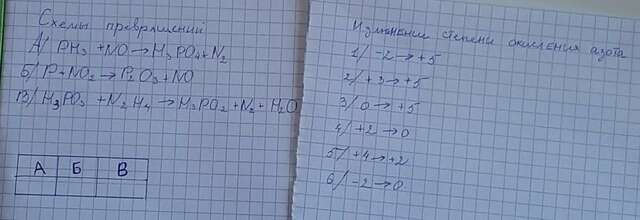 Схемы превращений
А/ PH3 + NO → H3PO4 + N2
Б/ P + NO2 → P2O3 + NO
В/ H3PO3 + N2H4 → H3PO2 + N2 + H2O
А Б В
Изменение степени окисления азота
1/ -2 → +5
2/ +3 → +5
3/ 0 → +5
4/ +2 → 0
5/ +4 → +2
6/ -2 → 0